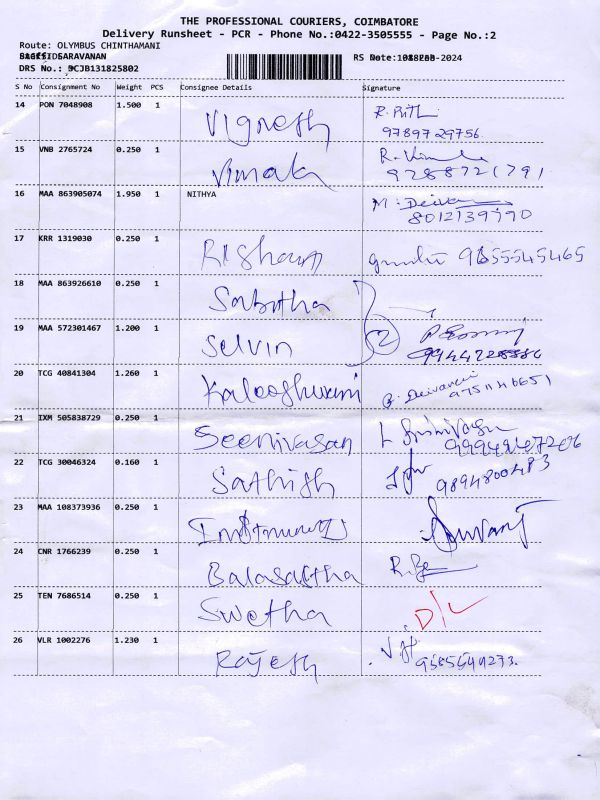 THE PROFESSIONAL COURIERS, COIMBATORE
Delivery Runsheet - PCR - Phone No.:0422-3505555 - Page No.:2
Route: OLYMBUS CHINTHAMANI
SARAVANAN RS Date: -2024
DRS No.: 9CJB131825802
S No Consignment No Weight PCS Consignee Details Signature
14 PON 7048908 1.500 1 Vignesh R. Prith
9789729756
15 VNB 2765724 0.250 1 Vimala R. Vimala
9288721791
16 MAA 863905074 1.950 1 NITHYA M. Deivani
8012139790
17 KRR 1319030 0.250 1 Rishaun 9655545465
18 MAA 863926610 0.250 1 Sabitha
19 MAA 572301467 1.200 1 Selvin 2
9944728886
20 TCG 40841304 1.260 1 Kaleeshwari Deivanai
21 IXM 505838729 0.250 1 Seenivasan L Srinivasan
22 TCG 30046324 0.160 1 Sathish
9894800483
23 MAA 108373936 0.250 1
24 CNR 1766239 0.250 1
25 TEN 7686514 0.250 1 Swetha D/L
26 VLR 1002276 1.230 1 Rajesh
9585544273